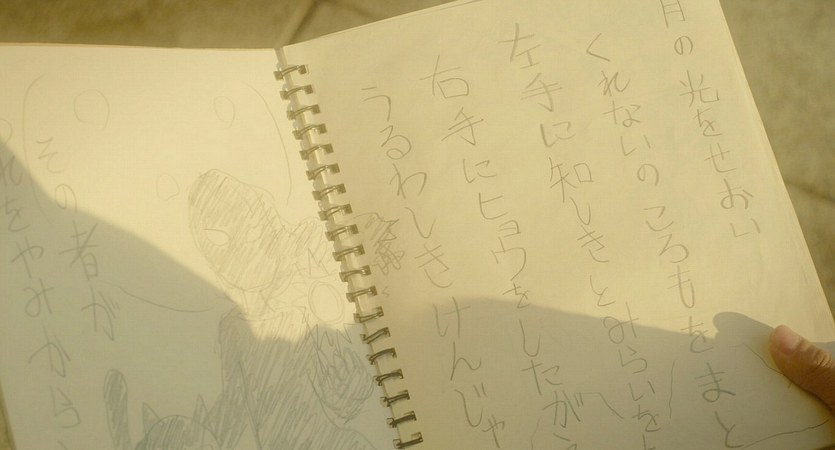 月の光をせおい
くれないのころもをまと
左手に知しきとみらいを
右手にヒョウをしたが
うるわしきけんじゃ
その者が
れをやみから